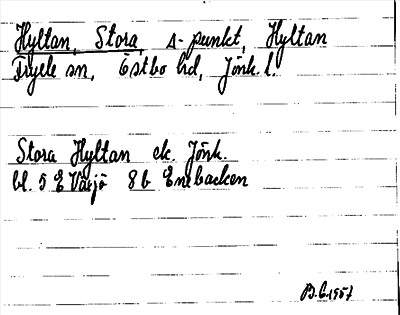 Hyltan, Stora, s-punkt, Hyltan
Fryele sn, Östbo hd, Jönk. l.
Stora Hyltan ek. Jönk.
bl. 5 E Växjö 8 b Enebacken
B.E. 1957